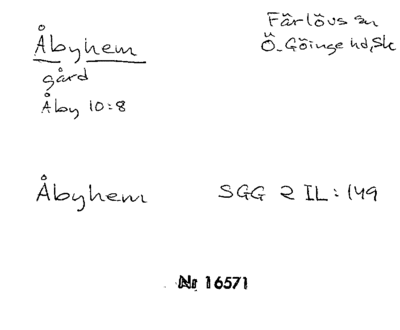 Åbyhem
Färlövs sn
Ö. Göinge hd, Sk
gård
Åby 10:8
Åbyhem SGG 2 IL: 149
Nr 16571